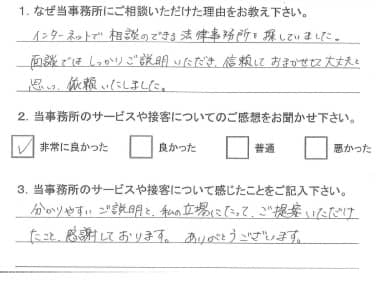 1. なぜ当事務所にご相談いただけた理由をお教え下さい。
インターネットで相談のできる法律事務所を探していました。
面談ではしっかりご説明いただき、信頼しておまかせして大丈夫と
思い、依頼いたしました。
2. 当事務所のサービスや接客についてのご感想をお聞かせ下さい。
✓ 非常に良かった □ 良かった □ 普通 □ 悪かった
3. 当事務所のサービスや接客について感じたことをご記入下さい。
分かりやすいご説明と、私の立場にたって、ご提案いただけ
たこと、感謝しております。 ありがとうございます。